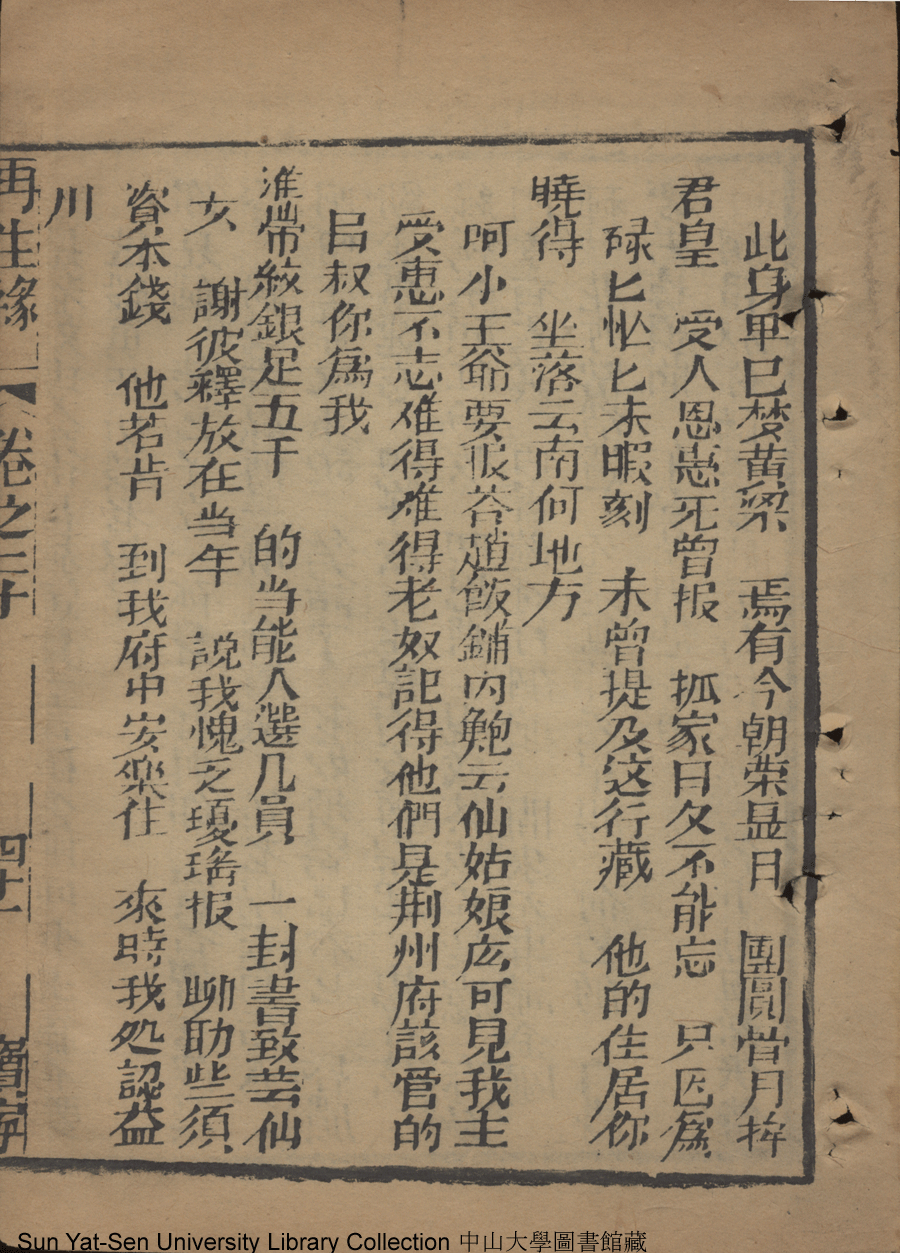 此身早已梦黄粱　焉有今朝荣显日　團圓常月拜
君皇　受人恩惠死曾报　孤家日夕不能忘　只因為
碌匕忙匕未暇刻　未曾提及这行藏　他的住居你
曉得　坐落云南何地方
呵小王爺要报荅趙飯鋪内鮑云仙姑娘庅可見我主
受惠不忘难得难得老奴記得他們是荆州府該管的
吕叔你為我
准带紋銀足五千　的当能人選几員　一封書致芸仙
女　謝彼釋放在当年　説我愧乏瓊瑤报　聊助些須
資本錢　他若肯　到我府中安楽住　來時我処認益
川
再生緣　卷之二十　四十一　寶寧
Sun Yat-Sen University Library Collection 中山大學圖書館藏